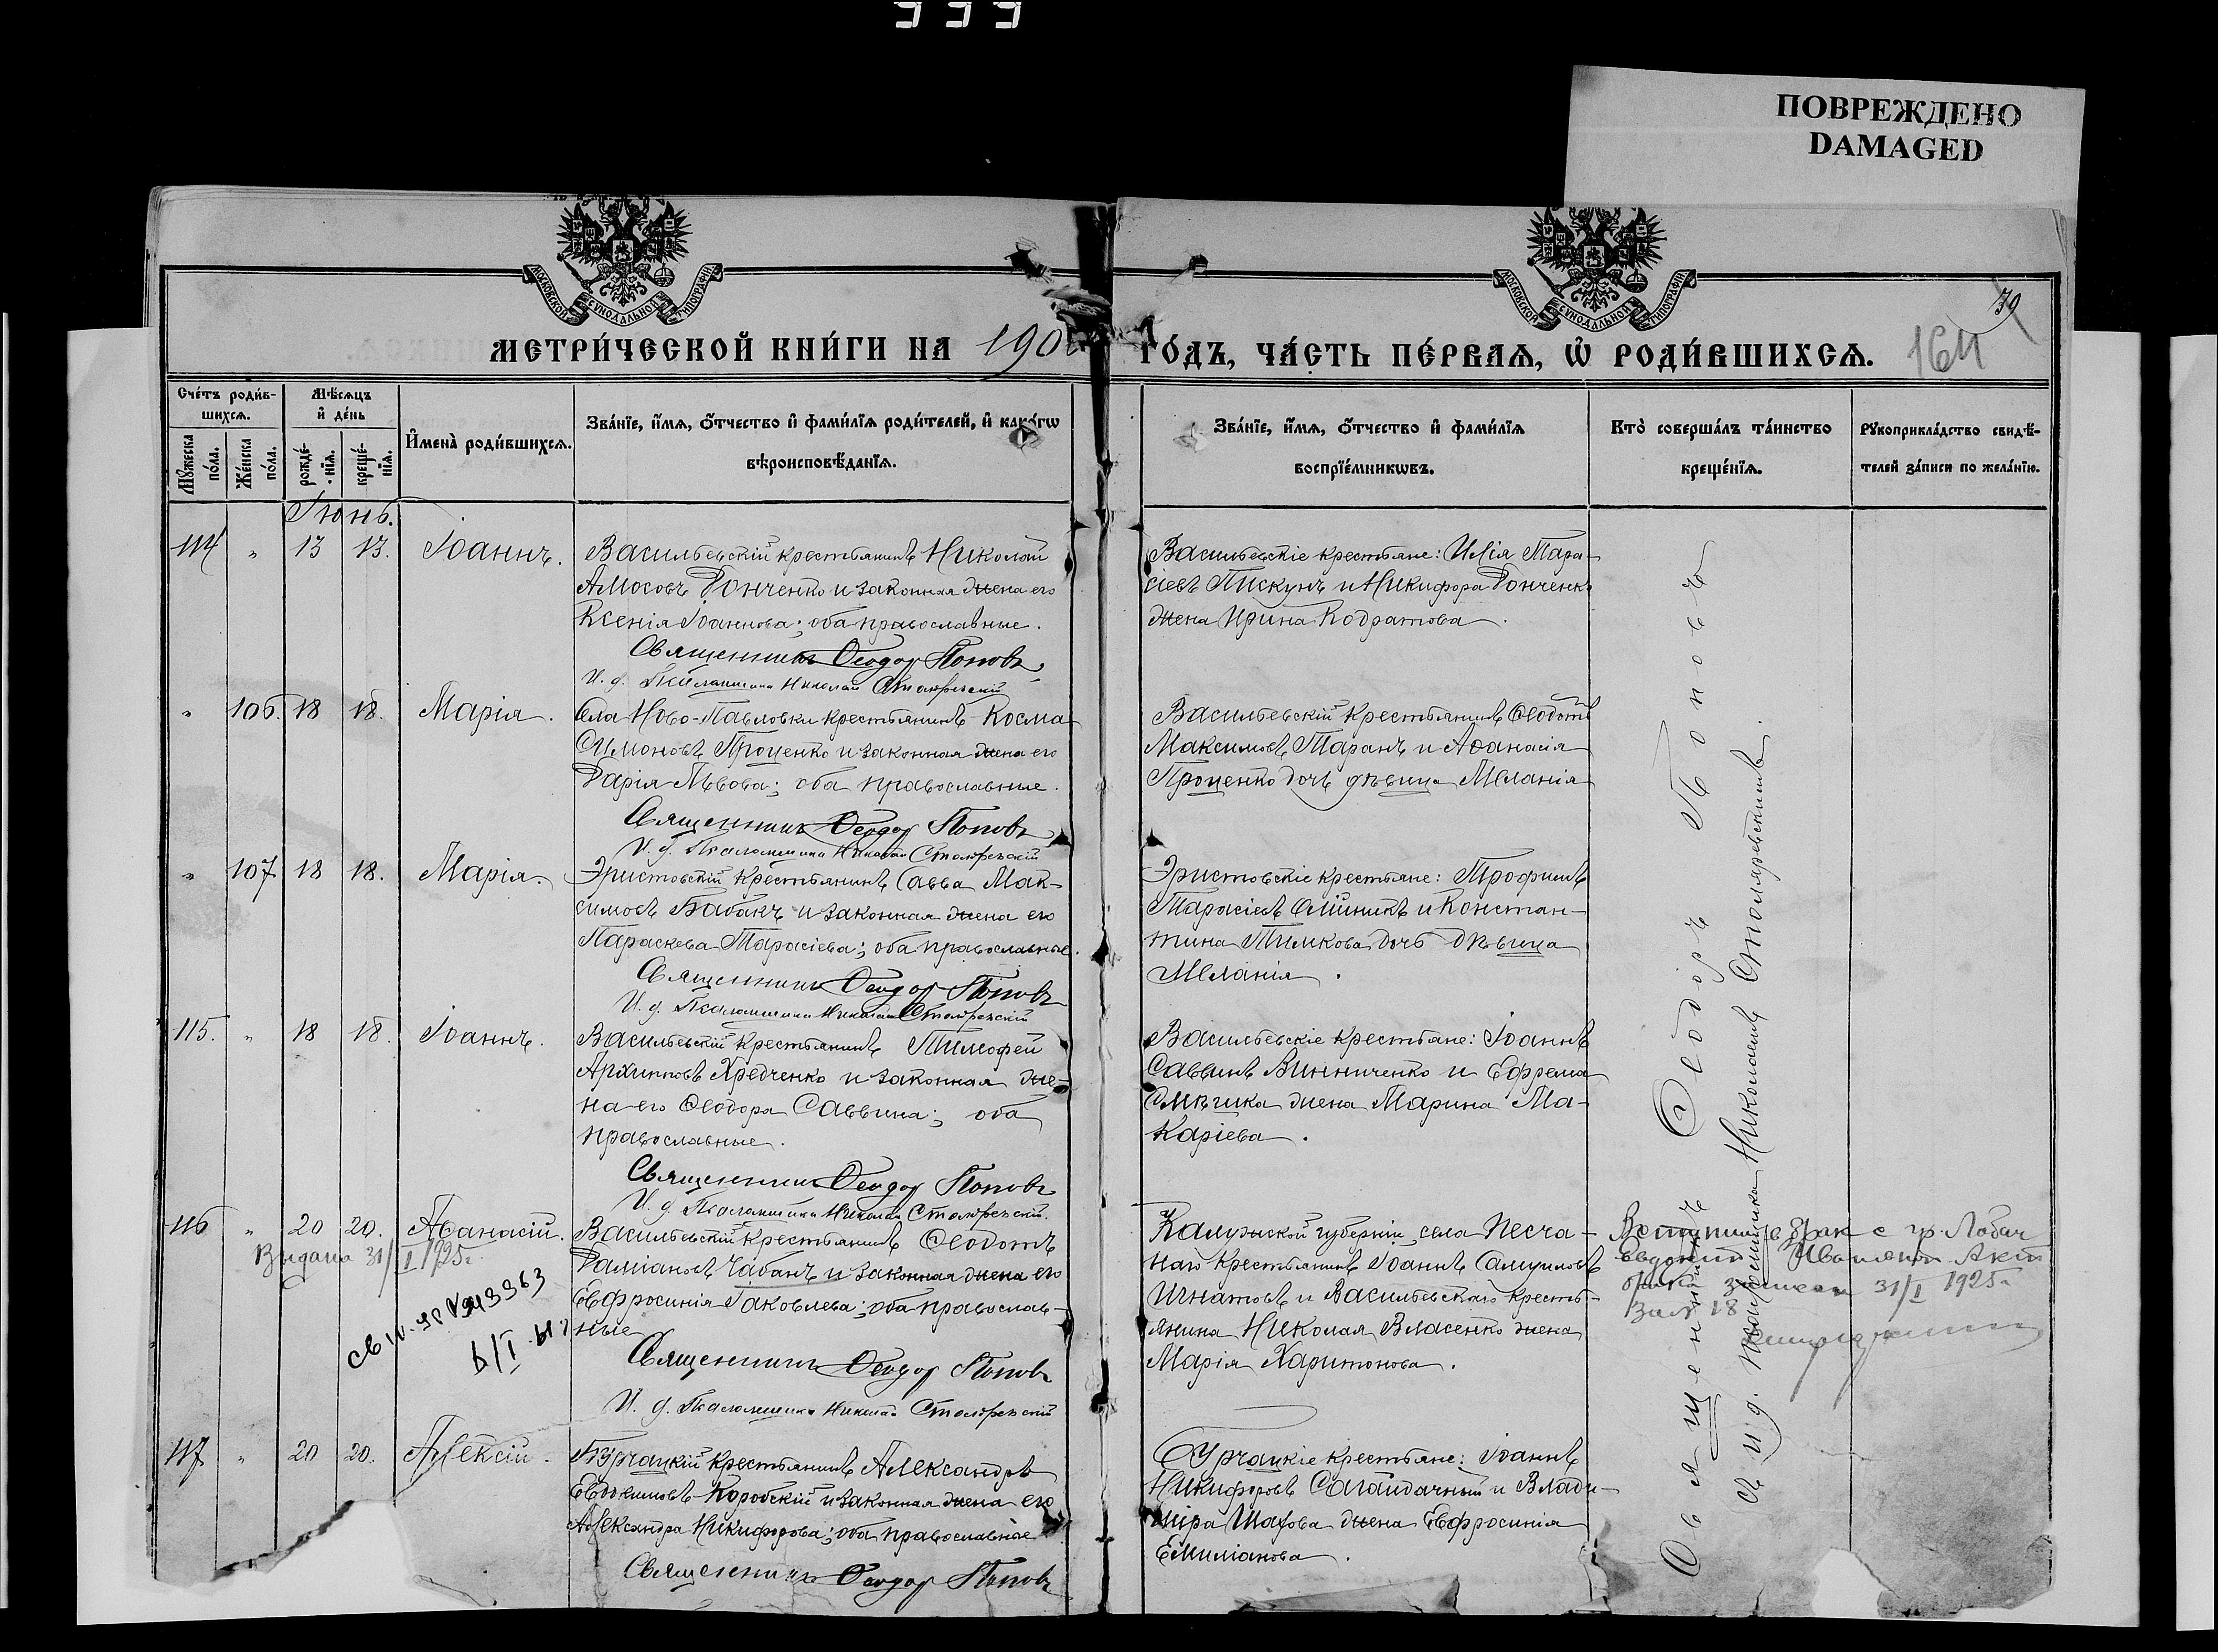 333
ПОВРЕЖДЕНО
DAMAGED
МОСКОВСКОЙ СѴНОДАЛЬНОЙ ТИПОГРАФІИ
МОСКОВСКОЙ СѴНОДАЛЬНОЙ ТИПОГРАФІИ
79
164
МЕТРИ́ЧЕСКОЙ КНИ́ГИ НА 190
ГО́ДЪ, ЧА́СТЬ ПЕ́РВАѦ, Ѡ҆ РОДИ́ВШИХСѦ.
Сче́тъ роди́в-
шихсѧ.
Мꙋ́жеска по́ла.
Же́нска по́ла.
Мѣ́сѧцъ
и҆ де́нь
рожде́-нїѧ.
креще́-нїѧ.
И҆мена̀ роди́вшихсѧ.
Зва́нїе, и҆́мѧ, ѻ҆́тчество и҆ фами́лїѧ роди́телей, и҆ како́гѡ
вѣроисповѣ́данїѧ.
Зва́нїе, и҆́мѧ, ѻ҆́тчество и҆ фами́лїѧ
воспрїе́мникѡвъ.
Кто̀ соверша́лъ та́инство
креще́нїѧ.
Рꙋкоприкла́дство свидѣ́-
телей за́писи по жела́нїю.
Іюнь.
114 " 13 13. Іоаннъ.
Васильевскій крестьянинъ Николай
Амосовъ Гонченко и законная жена его
Ксенія Іоаннова; оба православные.
Священникъ Ѳеодор Поповъ
И. д. Псаломщика Николай Столяревскій
Васильевскіе крестьяне: Илія Тара-
сіевъ Пискунъ и Никифора Гонченко
жена Ирина Кодратова.
" 106. 18 18. Марія.
Села Ново-Павловки крестьянинъ Косма
Симоновъ Проценко и законная жена его
Дарія Львова; оба православные.
Священникъ Ѳеодор Поповъ
И. д. Псаломщика Николай Столяревскій
Васильевскій крестьянинъ Ѳеодотъ
Максимовъ Таранъ и Аѳанасія
Проценко дочь дѣвица Меланія
" 107 18 18. Марія.
Эристовскій крестьянинъ Савва Мак-
симовъ Бабакъ и законная жена его
Параскева Тарасіева; оба православные.
Священникъ Ѳеодор Поповъ
И. д. Псаломщика Николай Столяревскій
Эристовскіе крестьяне: Трофимъ
Тарасіевъ Олійникъ и Констан-
тина Тимкова дочь дѣвица
Меланія.
115. " 18 18. Іоаннъ.
Васильевскій крестьянинъ Тимофей
Архиповъ Хредченко и законная же-
на его Ѳеодора Саввина; оба
православные.
Священникъ Ѳеодор Поповъ
И. д. Псаломщика Николай Столяревскій.
Васильевскіе крестьяне: Іоаннъ
Саввинъ Винниченко и Ефрема
жена Марина Ма-
каріева.
116 " 20 20. Аѳанасій.
Видана 31/I 1925г.
Васильевскій крестьянинъ Ѳеодотъ
Даміановъ Чабанъ и законная жена его
Евфросинія Іаковлева; оба православ-
ные
Священникъ Ѳеодор Поповъ
И. д. Псаломщика Николай Столяревскій
Калужской губерніи, села Песча-
наго крестьянинъ Іоаннъ Самуиловъ
Игнатовъ и Васильевскаго кресть-
янина Николая Власенко жена
Марія Харитонова.
Вступил в брак с гр. Лобач
Евдокией Ивановной Акт
брака записан 31/I 1925г
За № 18
117 " 20 20. Алексій.
Бурчацкій крестьянинъ Александръ
Евдокимовъ Коробскій и законная жена его
Александра Никифорова; оба православные
Священникъ Ѳеодор Поповъ
Бурчацкіе крестьяне: Іоаннъ
Никифоровъ Сагайдачный и Влади-
міра Шахова жена Евфросинія
Емиліанова.
Священникъ Ѳеодоръ Поповъ
Съ и. д. псаломщика Николаемъ Столяревскимъ.